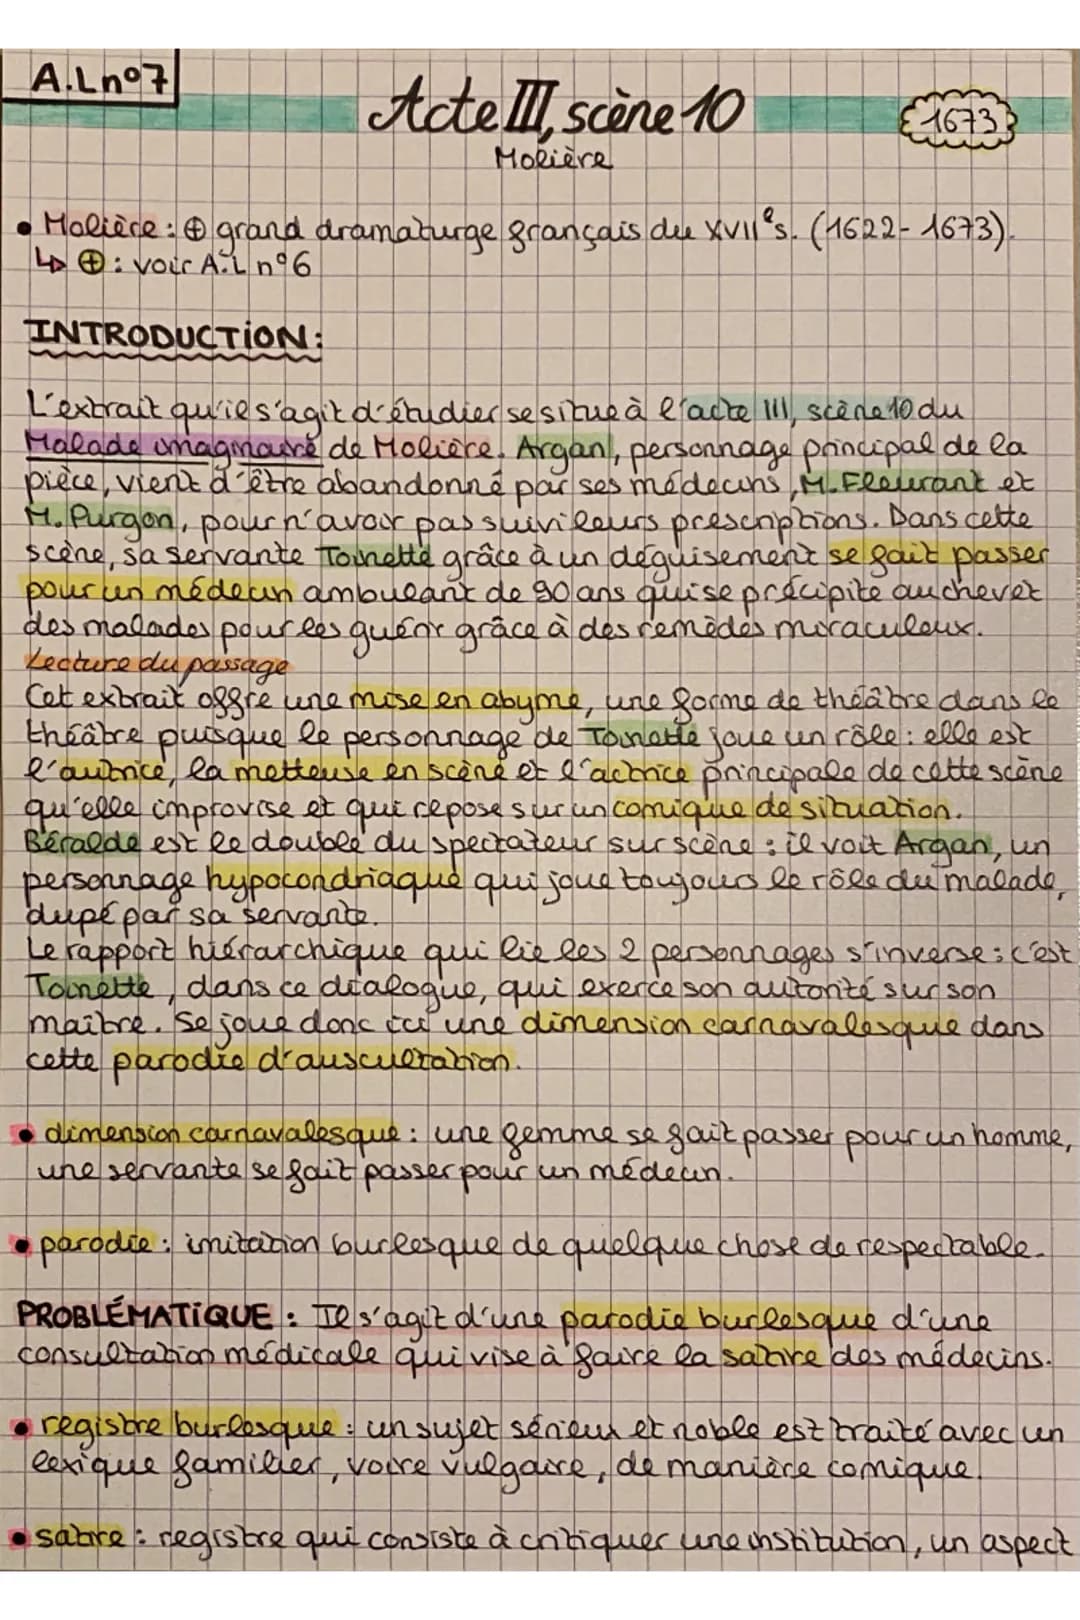 A.L n°7
Acte III, scène 10
1673
Molière
• Molière : ⊕ grand dramaturge français du XVIIe s. (1622-1673).
↳ ⊕ : voir A.L n°6
INTRODUCTION :
L'extrait qu'il s'agit d'étudier se situe à l'acte III, scène 10 du
Malade imaginaire de Molière. Argan, personnage principal de la
pièce, vient d'être abandonné par ses médecins, M. Fleurant et
M. Purgon, pour n'avoir pas suivi leurs prescriptions. Dans cette
scène, sa servante Toinette grâce à un déguisement se fait passer
pour un médecin ambulant de 90 ans qui se précipite au chevet
des malades pour les guérir grâce à des remèdes miraculeux.
Lecture du passage
Cet extrait offre une mise en abyme, une forme de théâtre dans le
théâtre puisque le personnage de Toinette joue un rôle : elle est
l'autrice, la metteuse en scène et l'actrice principale de cette scène
qu'elle improvise et qui repose sur un comique de situation.
Béralde est le double du spectateur sur scène : il voit Argan, un
personnage hypocondriaque qui joue toujours le rôle du malade,
dupé par sa servante.
Le rapport hiérarchique qui lie les 2 personnages s'inverse : c'est
Toinette, dans ce dialogue, qui exerce son autorité sur son
maître. Se joue donc ici une dimension carnavalesque dans
cette parodie d'auscultation.
• dimension carnavalesque : une femme se fait passer pour un homme,
une servante se fait passer pour un médecin.
• parodie : imitation burlesque de quelque chose de respectable.
PROBLÉMATIQUE : Il s'agit d'une parodie burlesque d'une
consultation médicale qui vise à faire la satire des médecins.
• registre burlesque : un sujet sérieux et noble est traité avec un
lexique familier, voire vulgaire, de manière comique.
• satire : registre qui consiste à critiquer une institution, un aspect